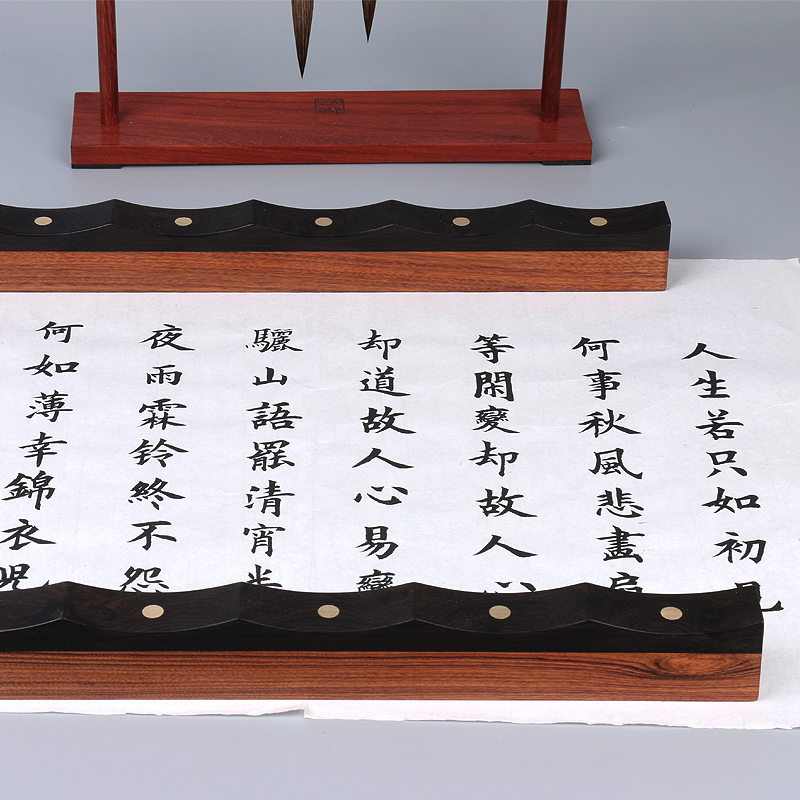 人生若只如初見
何事秋風悲畫扇
等閑變却故人心
却道故人心易變
驪山語罷清宵半
夜雨霖铃終不怨
何如薄幸錦衣